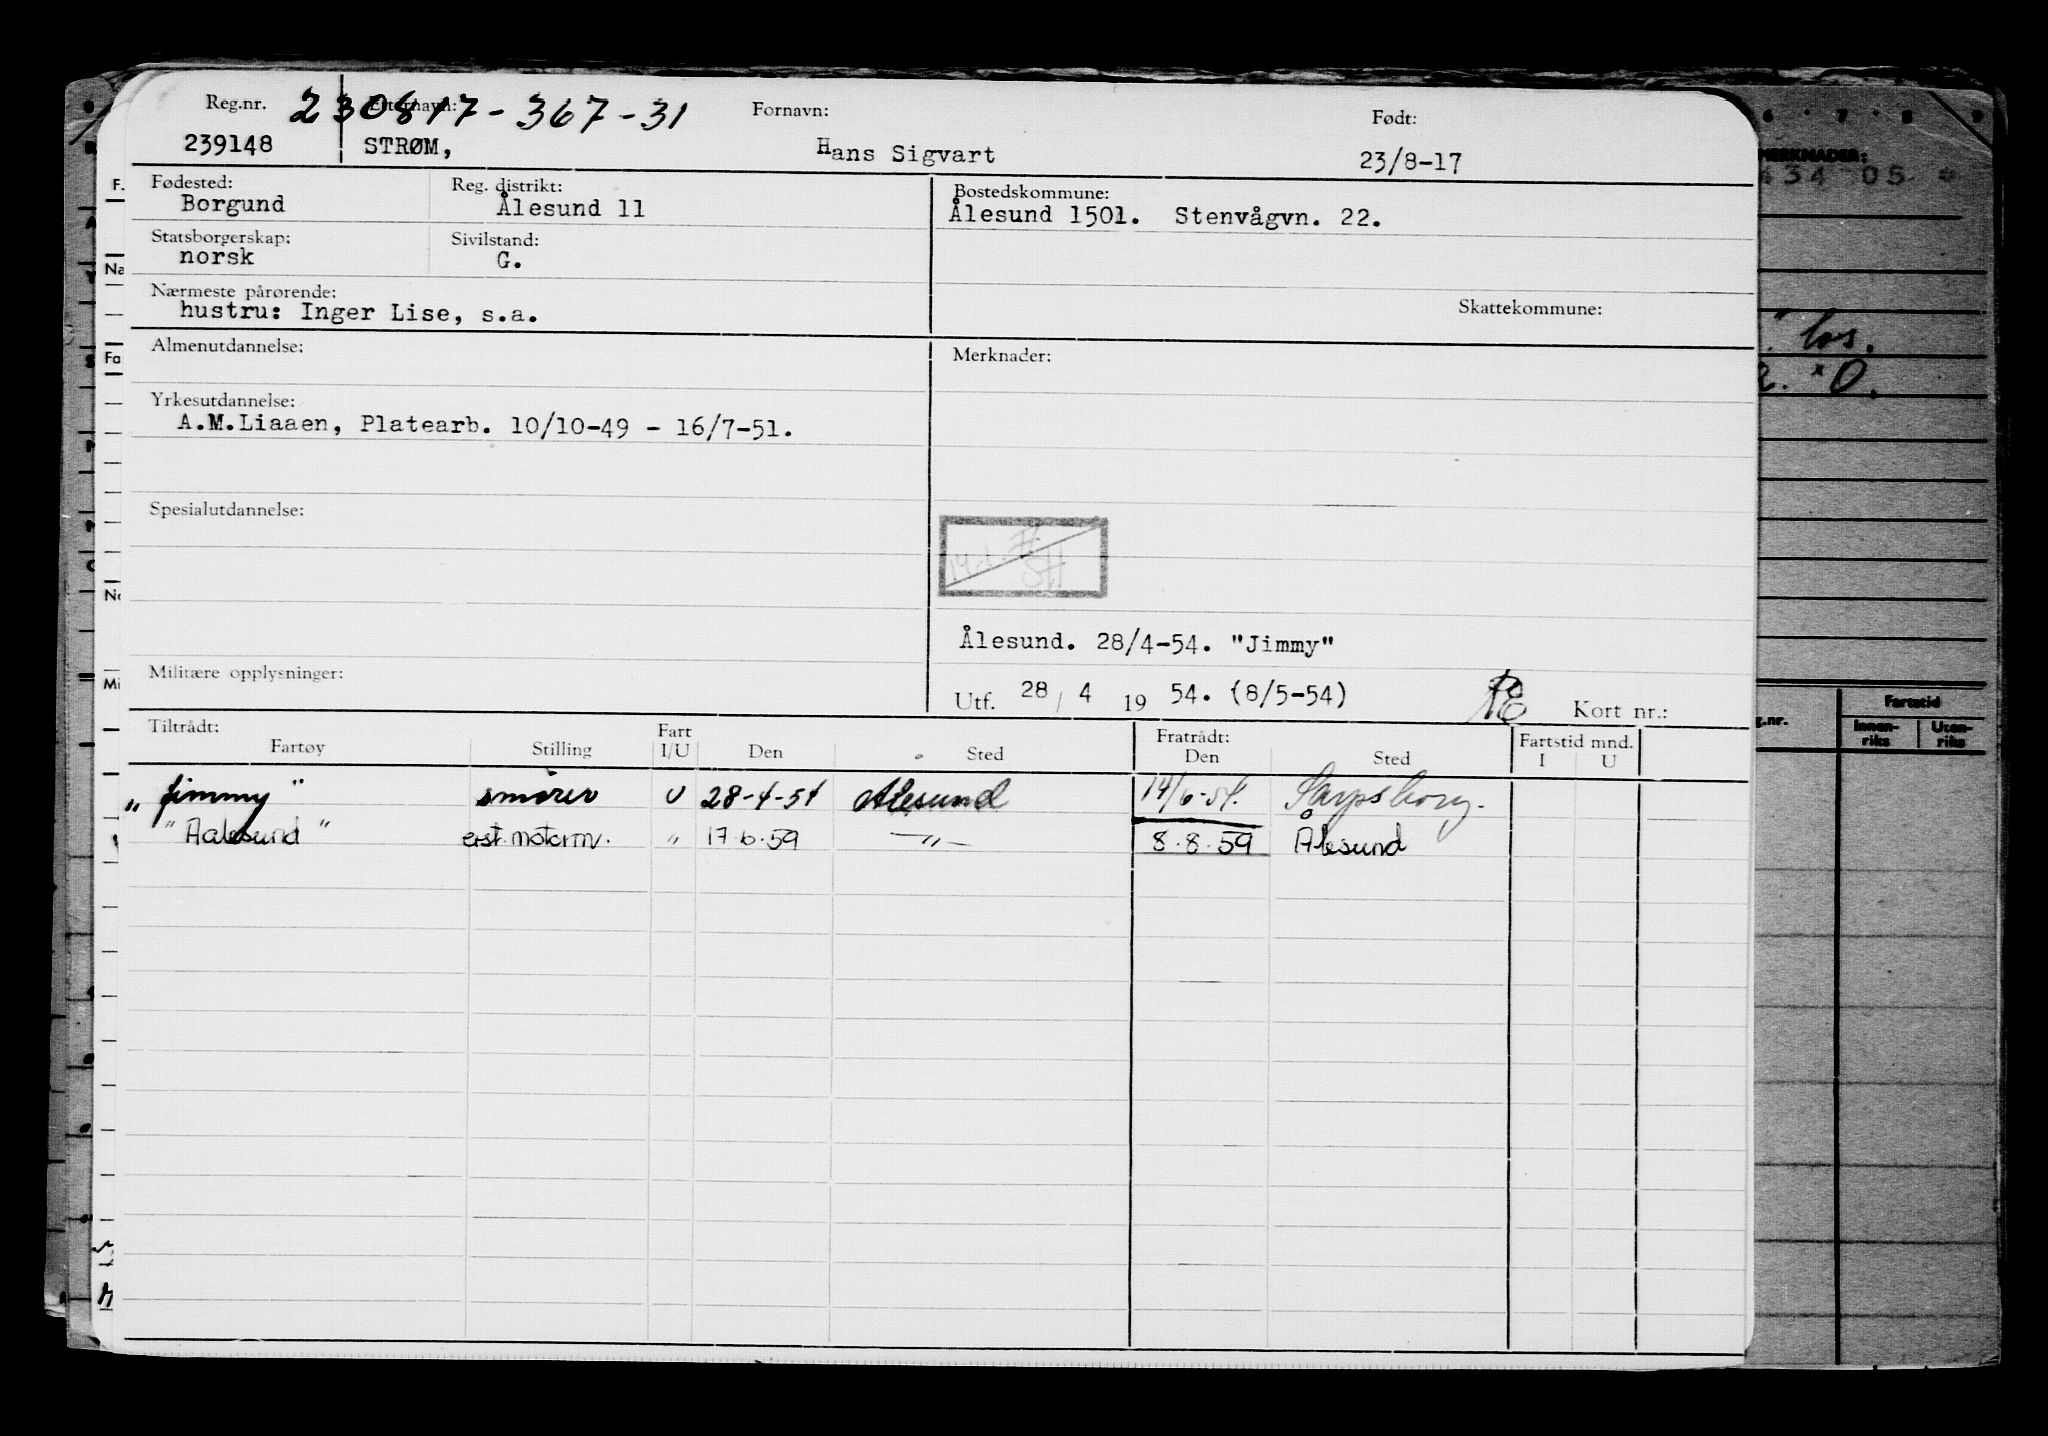 Reg.nr. Etternavn: Fornavn: Født:
230817-367-31
239148 STRØM, Hans Sigvart 23/8-17
Fødested: Reg. distrikt: Bostedskommune:
Borgund Ålesund 11 Ålesund 1501. Stenvågvn. 22.
Statsborgerskap: Sivilstand:
norsk G.
Nærmeste pårørende: Skattekommune:
hustru: Inger Lise, s.a.
Almenutdannelse: Merknader:
Yrkesutdannelse:
A.M.Liaaen, Platearb. 10/10-49 - 16/7-51.
Spesialutdannelse:
Ålesund. 28/4-54. "Jimmy"
Militære opplysninger:
Utf. 28 / 4 19 54. (8/5-54) Kort nr.:
Tiltrådt: Fart Fratrådt: Fartstid mnd.
Fartøy Stilling I/U Den Sted Den Sted I U
"Jimmy" smører U 28-4-54 Ålesund 14/6-54. Sarpsborg.
"Aalesund" erst. motorm. " 17.6.59 —"— 8.8.59 Ålesund
6 7 8 9
MERKNADER:
434 05 *
" los.
2. "O.
g.nr. Fartstid
Innen-riks Uten-riks
F.
Na
Fa
Mi